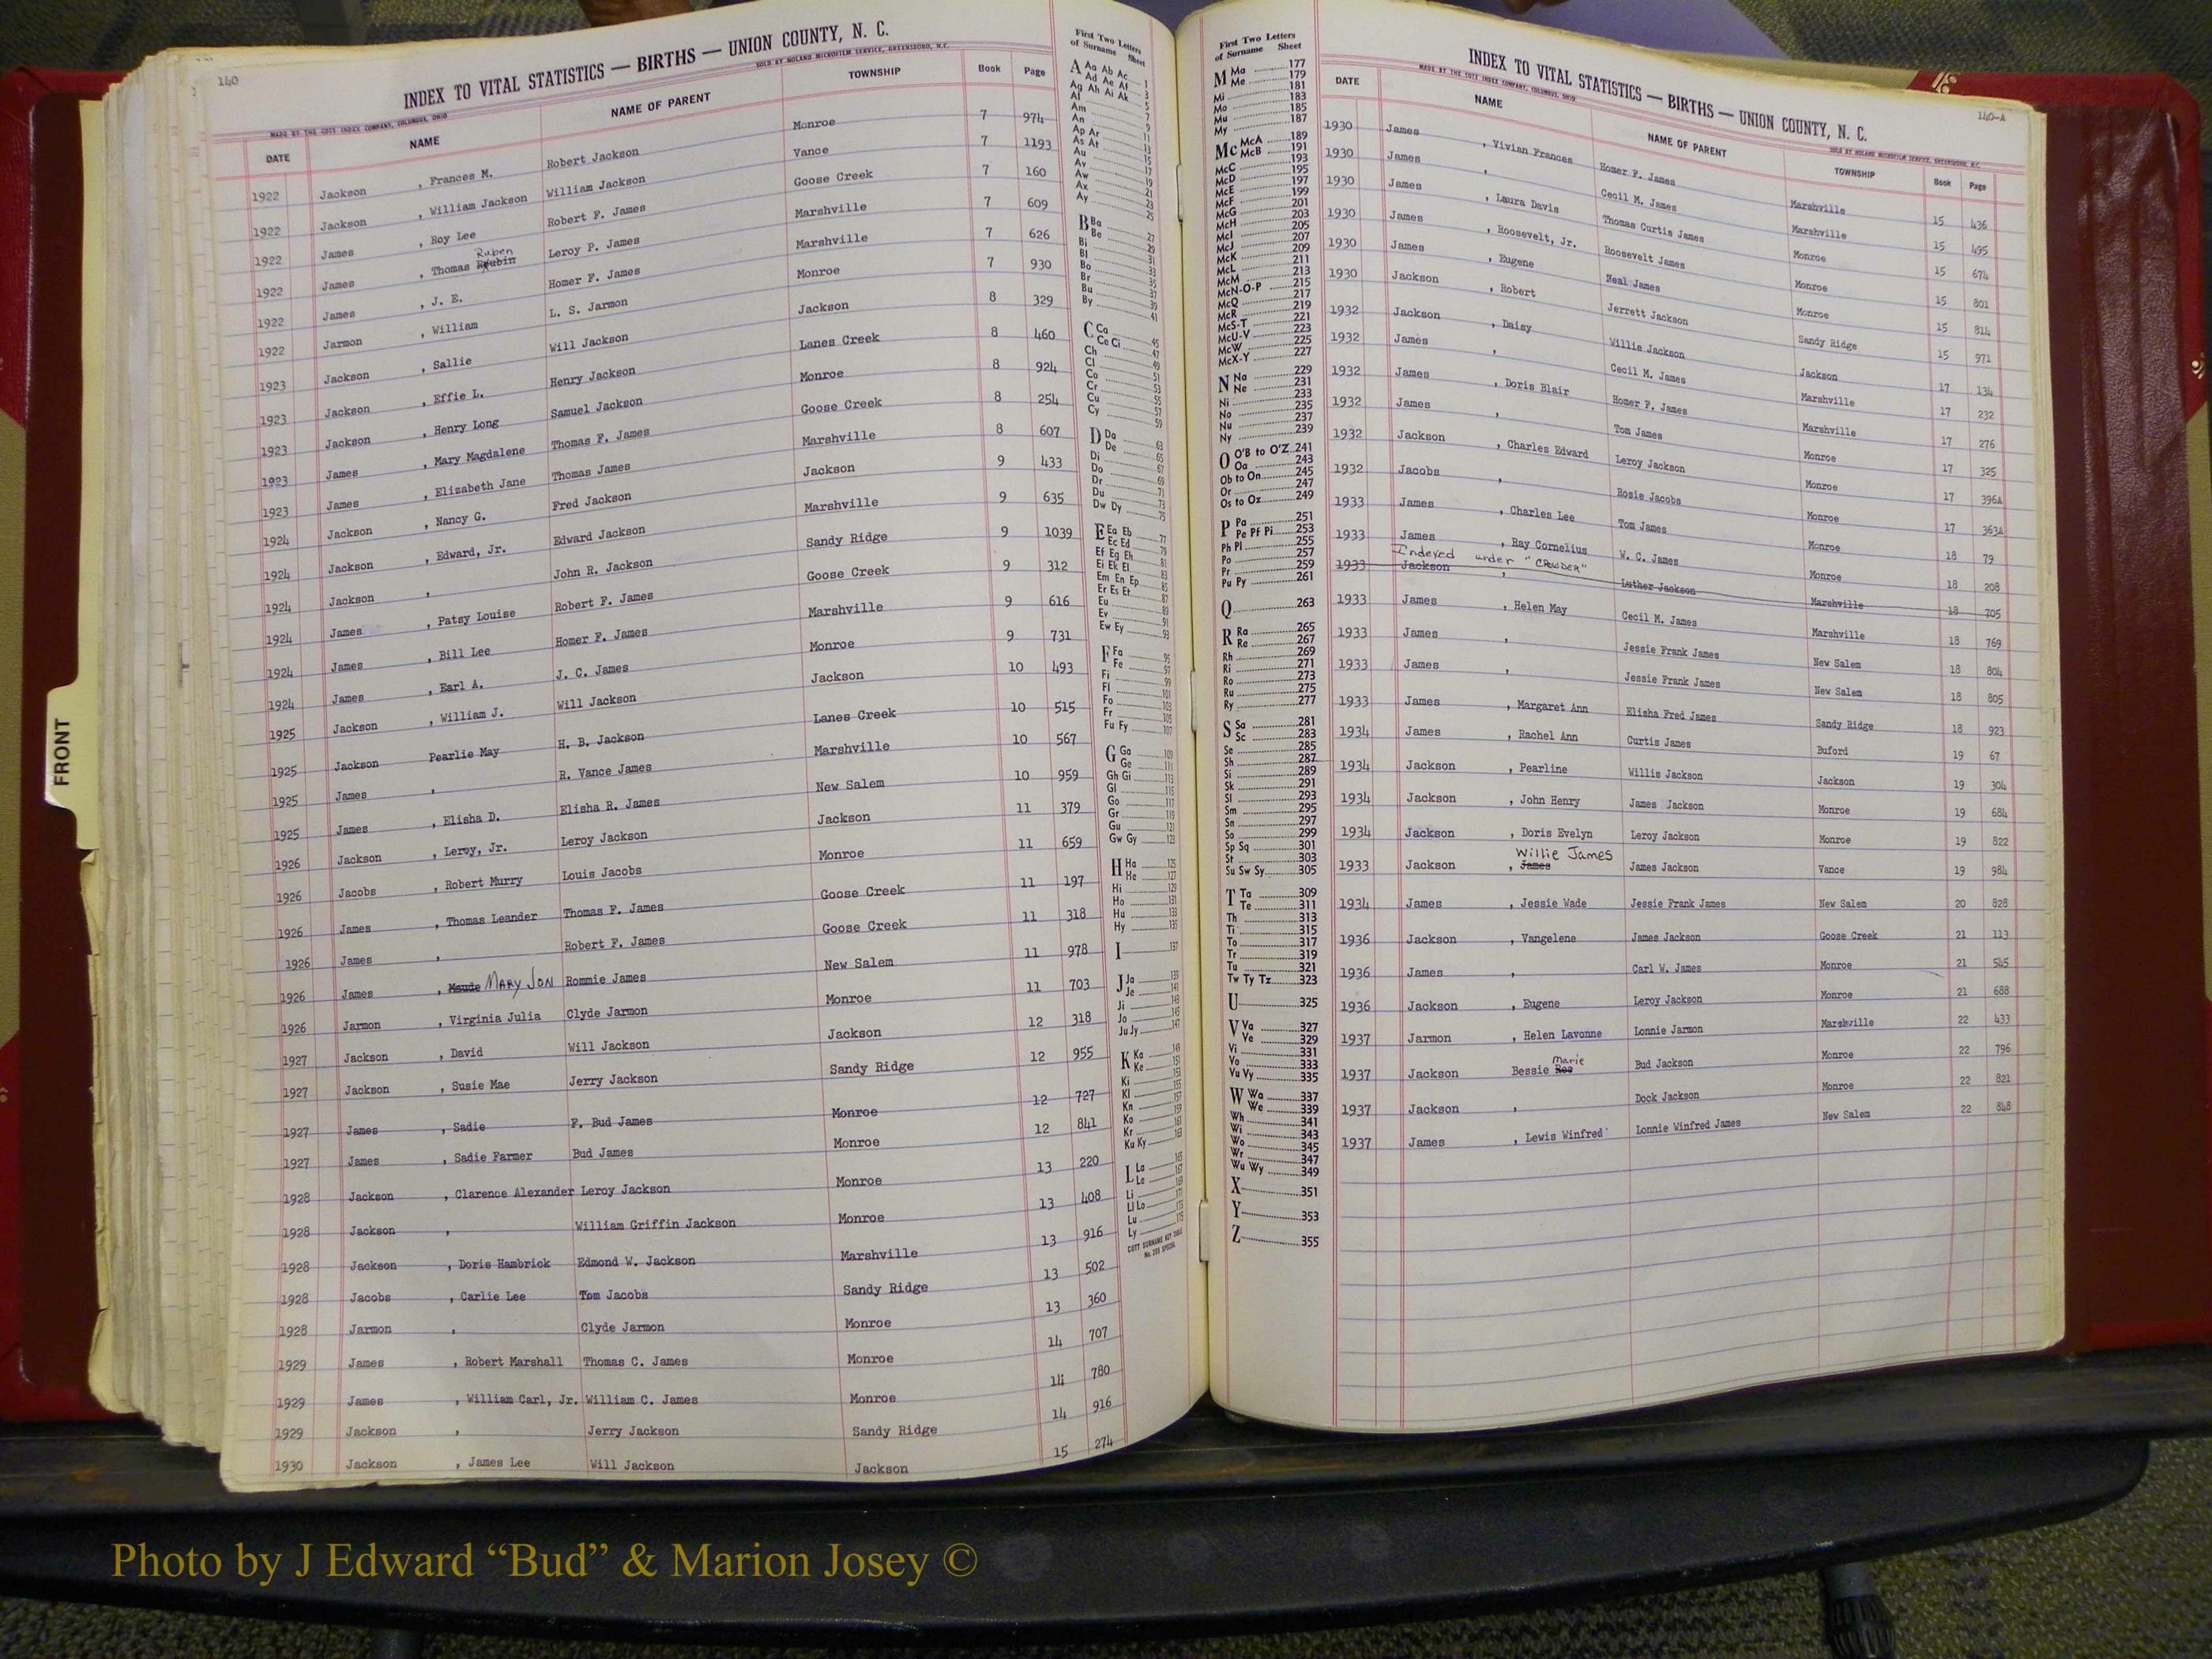 140
INDEX TO VITAL STATISTICS — BIRTHS — UNION COUNTY, N. C.
MADE BY THE COTT INDEX COMPANY, COLUMBUS, OHIO SOLD BY NOLAND MICROFILM SERVICE, GREENSBORO, N.C.
DATE NAME NAME OF PARENT TOWNSHIP Book Page
1922 Jackson , Frances M. Robert Jackson Monroe 7 974
1922 Jackson , William Jackson William Jackson Vance 7 1193
1922 James , Roy Lee Robert F. James Goose Creek 7 160
Ruben
1922 James , Thomas Leroy P. James Marshville 7 609
1922 James , J. E. Homer F. James Marshville 7 626
1922 Jarmon , William L. S. Jarmon Monroe 7 930
1923 Jackson , Sallie Will Jackson Jackson 8 329
1923 Jackson , Effie L. Henry Jackson Lanes Creek 8 460
1923 Jackson , Henry Long Samuel Jackson Monroe 8 924
1923 James , Mary Magdalene Thomas F. James Goose Creek 8 254
1923 James , Elizabeth Jane Thomas James Marshville 8 607
1924 Jackson , Nancy G. Fred Jackson Jackson 9 433
1924 Jackson , Edward, Jr. Edward Jackson Marshville 9 635
1924 Jackson , John R. Jackson Sandy Ridge 9 1039
1924 James , Patsy Louise Robert F. James Goose Creek 9 312
1924 James , Bill Lee Homer F. James Marshville 9 616
1924 James , Earl A. J. C. James Monroe 9 731
1925 Jackson , William J. Will Jackson Jackson 10 493
1925 Jackson Pearlie May H. B. Jackson Lanes Creek 10 515
1925 James , R. Vance James Marshville 10 567
1925 James , Elisha D. Elisha R. James New Salem 10 959
1926 Jackson , Leroy, Jr. Leroy Jackson Jackson 11 379
1926 Jacobs , Robert Murry Louis Jacobs Monroe 11 659
1926 James , Thomas Leander Thomas F. James Goose Creek 11 197
1926 James , Robert F. James Goose Creek 11 318
1926 James , Maude MARY JON Rommie James New Salem 11 978
1926 Jarmon , Virginia Julia Clyde Jarmon Monroe 11 703
1927 Jackson , David Will Jackson Jackson 12 318
1927 Jackson , Susie Mae Jerry Jackson Sandy Ridge 12 955
1927 James , Sadie F. Bud James Monroe 12 727
1927 James , Sadie Farmer Bud James Monroe 12 841
1928 Jackson , Clarence Alexander Leroy Jackson Monroe 13 220
1928 Jackson , William Griffin Jackson Monroe 13 408
1928 Jackson , Doris Hambrick Edmond W. Jackson Marshville 13 916
1928 Jacobs , Carlie Lee Tom Jacobs Sandy Ridge 13 502
1928 Jarmon , Clyde Jarmon Monroe 13 360
1929 James , Robert Marshall Thomas C. James Monroe 14 707
1929 James , William Carl, Jr. William C. James Monroe 14 780
1929 Jackson , Jerry Jackson Sandy Ridge 14 916
1930 Jackson , James Lee Will Jackson Jackson 15 274
First Two Letters
of Surname Sheet
A Aa Ab Ac 1
Ad Ae Af 3
Ag Ah Ai Ak 5
Al 7
Am 9
An 11
Ap Ar 13
As At 15
Au 17
Av 19
Aw 21
Ax 23
Ay 25
B Ba 27
Be 29
Bi 31
Bl 33
Bo 35
Br 37
Bu 39
By 41
C Ca 45
Ce Ci 47
Ch 49
Cl 51
Co 53
Cr 55
Cu 57
Cy 59
D Da 63
De 65
Di 67
Do 69
Dr 71
Du 73
Dw Dy 75
E Ea Eb 77
Ec Ed 79
Ef Eg Eh 81
Ei Ek El 83
Em En Ep 85
Er Es Et 87
Eu 89
Ev 91
Ew Ey 93
F Fa 95
Fe 97
Fi 99
Fl 101
Fo 103
Fr 105
Fu Fy 107
G Ga 109
Ge 111
Gh Gi 113
Gl 115
Go 117
Gr 119
Gu 121
Gw Gy 123
H Ha 125
He 127
Hi 129
Ho 131
Hu 133
Hy 135
I 137
J Ja 139
Je 141
Ji 143
Jo 145
Ju Jy 147
K Ka 149
Ke 151
Ki 153
Kl 155
Kn 157
Ko 159
Kr 161
Ku Ky 163
L La 165
Le 169
Li 171
Ll Lo 173
Lu 175
Ly
COTT SURNAME KEY TABLE
No. 255 SPECIAL
First Two Letters
of Surname Sheet
M Ma 177
Me 179
181
Mi 183
Mo 185
Mu 187
My
Mc McA 189
McB 191
McC 193
McD 195
McE 197
McF 199
McG 201
McH 203
McI 205
McJ 207
McK 209
McL 211
McM 213
McN-O-P 215
McQ 217
McR 219
McS-T 221
McU-V 223
McW 225
McX-Y 227
N Na 229
Ne 231
Ni 233
No 235
Nu 237
Ny 239
O O'B to O'Z 241
Oa 243
Ob to On 245
Or 247
Os to Oz 249
P Pa 251
Pe Pf Pi 253
Ph Pl 255
Po 257
Pr 259
Pu Py 261
Q 263
R Ra 265
Re 267
Rh 269
Ri 271
Ro 273
Ru 275
Ry 277
S Sa 281
Sc 283
Se 285
Sh 287
Si 289
Sk 291
Sl 293
Sm 295
Sn 297
So 299
Sp Sq 301
St 303
Su Sw Sy 305
T Ta 309
Te 311
Th 313
Ti 315
To 317
Tr 319
Tu 321
Tw Ty Tz 323
U 325
V Va 327
Ve 329
Vi 331
Vo 333
Vu Vy 335
W Wa 337
We 339
Wh 341
Wi 343
Wo 345
Wr 347
Wu Wy 349
X 351
Y 353
Z 355
140-A
INDEX TO VITAL STATISTICS — BIRTHS — UNION COUNTY, N. C.
MADE BY THE COTT INDEX COMPANY, COLUMBUS, OHIO SOLD BY NOLAND MICROFILM SERVICE, GREENSBORO, N.C.
DATE NAME NAME OF PARENT TOWNSHIP Book Page
1930 James , Vivian Frances Homer F. James Marshville 15 436
1930 James , Cecil M. James Marshville 15 495
1930 James , Laura Davis Thomas Curtis James Monroe 15 674
1930 James , Roosevelt, Jr. Roosevelt James Monroe 15 801
1930 James , Eugene Neal James Monroe 15 814
1930 Jackson , Robert Jerrett Jackson Sandy Ridge 15 971
1932 Jackson , Daisy Willie Jackson Jackson 17 134
1932 James , Cecil M. James Marshville 17 232
1932 James , Doris Blair Homer F. James Marshville 17 276
1932 James , Tom James Monroe 17 325
1932 Jackson , Charles Edward Leroy Jackson Monroe 17 396A
1932 Jacobs , Rosie Jacobs Monroe 17 363A
1933 James , Charles Lee Tom James Monroe 18 79
1933 James , Ray Cornelius W. C. James Monroe 18 208
Indexed under "CROWDER"
1933 Jackson , Luther Jackson Marshville 18 705
1933 James , Helen May Cecil M. James Marshville 18 769
1933 James , Jessie Frank James New Salem 18 804
1933 James , Jessie Frank James New Salem 18 805
1933 James , Margaret Ann Elisha Fred James Sandy Ridge 18 923
1934 James , Rachel Ann Curtis James Buford 19 67
1934 Jackson , Pearline Willis Jackson Jackson 19 304
1934 Jackson , John Henry James Jackson Monroe 19 684
1934 Jackson , Doris Evelyn Leroy Jackson Monroe 19 822
Willie James
1933 Jackson , James James Jackson Vance 19 984
1934 James , Jessie Wade Jessie Frank James New Salem 20 828
1936 Jackson , Vangelene James Jackson Goose Creek 21 113
1936 James , Carl W. James Monroe 21 545
1936 Jackson , Eugene Leroy Jackson Monroe 21 688
1937 Jarmon , Helen Lavonne Lonnie Jarmon Marshville 22 433
Marie
1937 Jackson Bessie Bud Jackson Monroe 22 796
1937 Jackson , Dock Jackson Monroe 22 821
1937 James , Lewis Winfred Lonnie Winfred James New Salem 22 848
FRONT
Photo by J Edward “Bud” & Marion Josey ©